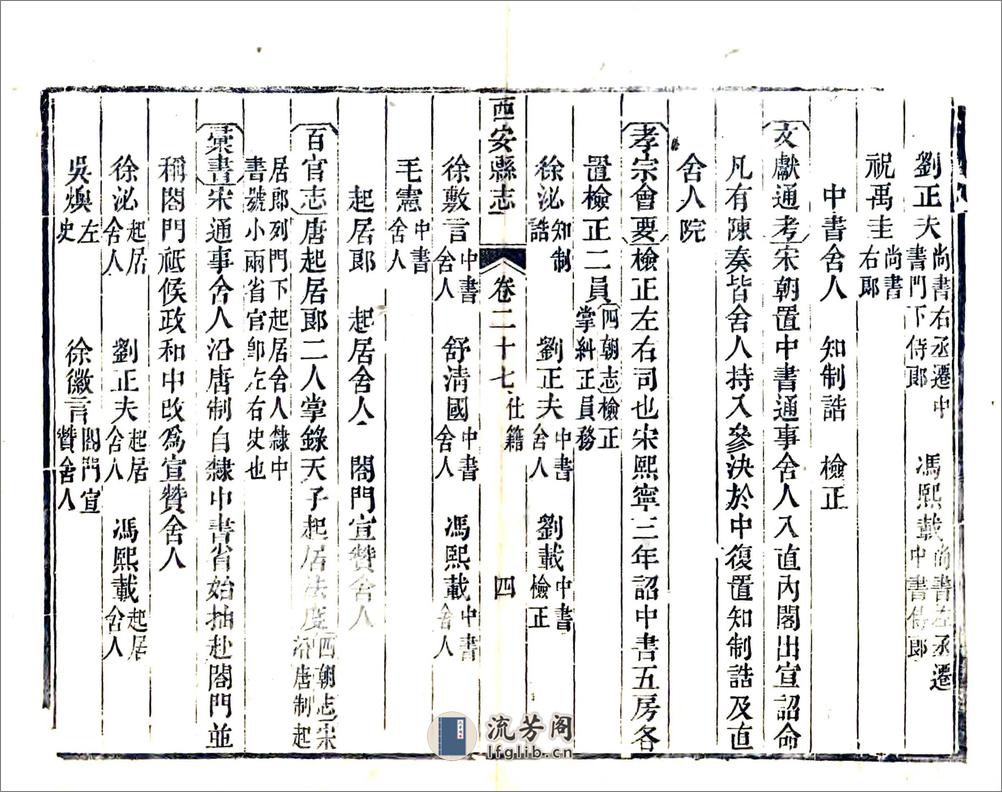 劉正夫尚書右丞遷中書門下侍郎 馮熙載尚書左丞遷中書侍郎
祝禹圭尚書右郎
中書舍人 知制誥 檢正
文獻通考宋朝置中書通事舍人入直內閣出宣詔命
凡有陳奏皆舍人持入參決於中復置知制誥及直
舍人院
孝宗會要檢正左右司也宋熙寧三年詔中書五房各
置檢正二員四朝志檢正掌糾正員務
徐泌知制誥 劉正夫中書舍人 劉載中書檢正
西安縣志 卷二十七 仕籍 四
徐敷言中書舍人 舒清國中書舍人 馮熙載中書舍人
毛憲中書舍人
起居郎 起居舍人 閤門宣贊舍人
百官志唐起居郎二人掌錄天子起居法度四朝志宋沿唐制起
居郎列門下起居舍人隸中書號小兩省官卽左右史也
彙書宋通事舍人沿唐制自隸中書省始抽赴閤門並
稱閤門祗候政和中改爲宣贊舍人
徐泌起居舍人 劉正夫起居舍人 馮熙載起居舍人
吳煥左史 徐徽言閤門宣贊舍人
流芳阁
lfglib.cn